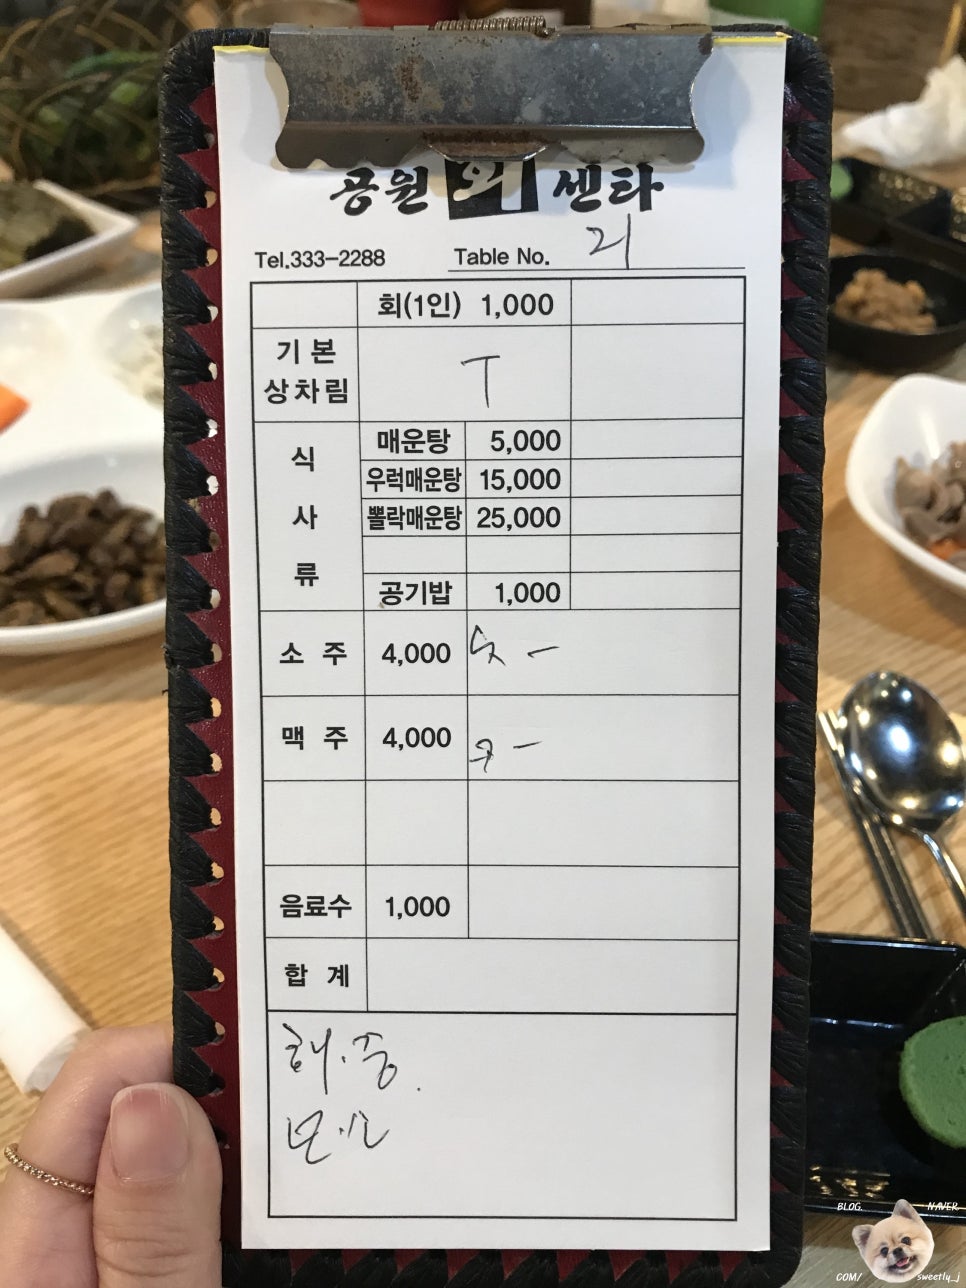 공원 회 센타
Tel.333-2288 Table No. 21
회(1인) 1,000
기 본
상차림 T
식 사 류
매운탕 5,000
우럭매운탕 15,000
뽈락매운탕 25,000
공기밥 1,000
소 주 4,000
맥 주 4,000
음료수 1,000
합 계
해.중.
BLOG. NAVER.
COM/ sweetly_j